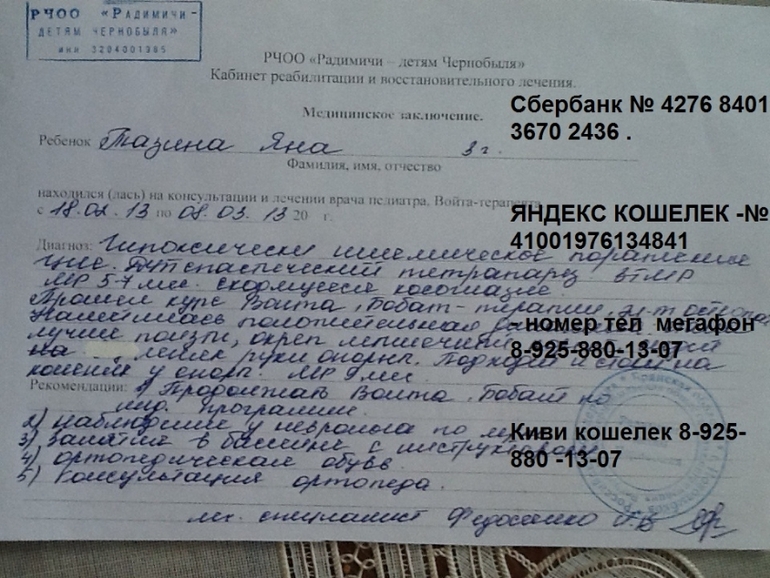 РЧОО «РАДИМИЧИ -
ДЕТЯМ ЧЕРНОБЫЛЯ»
ИНН 3204001385
РЧОО «Радимичи – детям Чернобыля»
Кабинет реабилитации и восстановительного лечения.
Медицинское заключение.
Сбербанк № 4276 8401
3670 2436 .
Ребенок Тазина Яна 3 г.
Фамилия, имя, отчество
находился (лась) на консультации и лечении врача педиатра, Войта-терапевта
с 18.02.13 по 08.03.13 20 г.
ЯНДЕКС КОШЕЛЕК -№
41001976134841
Диагноз: Гипоксически ишемическое поражение
ЦНС. спастический тетрапарез
МР 5-7 мес. сходящееся косоглазие.
Прошел курс Войта, Бобат- терапии
Наметилась положительная
лучше ползает, окреп
на руки опоры. и стоит на
коленях у опоры. МР 9 мес.
- номер тел мегафон
8-925-880-13-07
Рекомендации: 1) Продолжать Войта, Бобат по
инд. программе.
2) наблюдение у невролога по м/ж
3) занятие в бассейне с инструктором
4) ортопедическая обувь.
5) консультация ортопеда.
Киви кошелек 8-925-
880 -13-07
специалист Федосенко